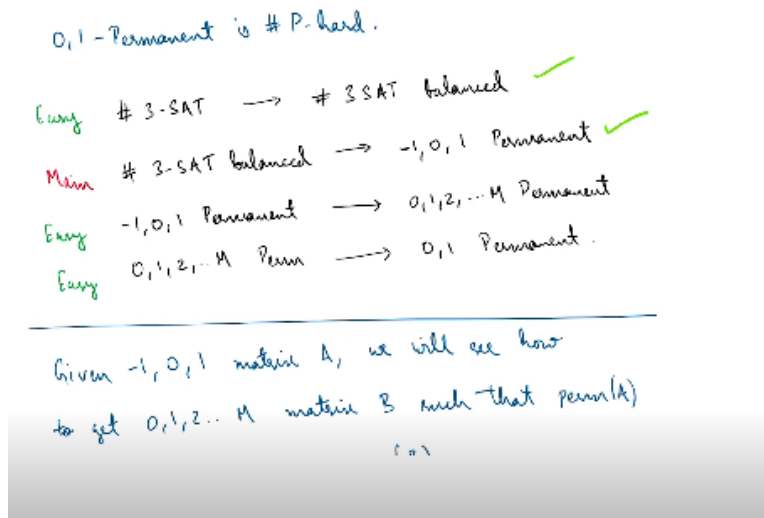 0,1 - Permanent is # P-hard.
Easy # 3-SAT → # 3SAT balanced ✓
Main # 3-SAT balanced → -1,0,1 Permanent ✓
Easy -1,0,1 Permanent → 0,1,2,...M Permanent
Easy 0,1,2,..M Perm → 0,1 Permanent.
Given -1,0,1 matrix A, we will see how
to get 0,1,2...M matrix B such that perm(A)